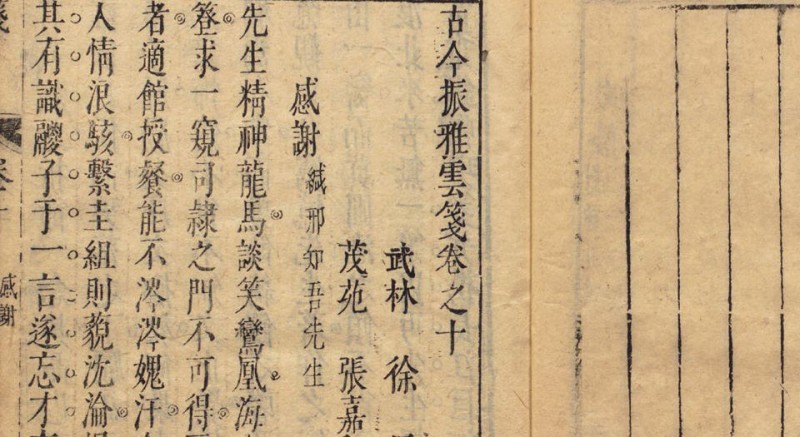 古今振雅雲箋卷之十
武林 徐
茂苑 張嘉
感謝
緘邢知吾先生
先生精神龍馬談笑鸞凰海
簦求一窺司隷之門不可得
者適館授餐能不涔涔媿汗
人情浪駭繫圭組則藐沈淪
其有識鬷子于一言遂忘才
感謝